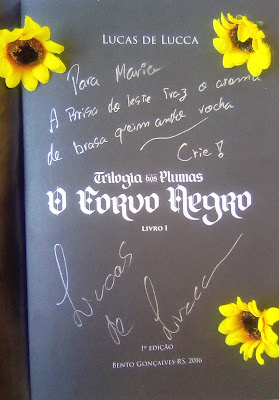 LUCAS DE LUCCA
Para Maria
A Brisa do leste traz o aroma
de brasa queimando rocha
Crie!
Trilogia das Plumas
O Corvo Negro
LIVRO I
Lucas
de Lucca
1ª EDIÇÃO
BENTO GONÇALVES-RS, 2016